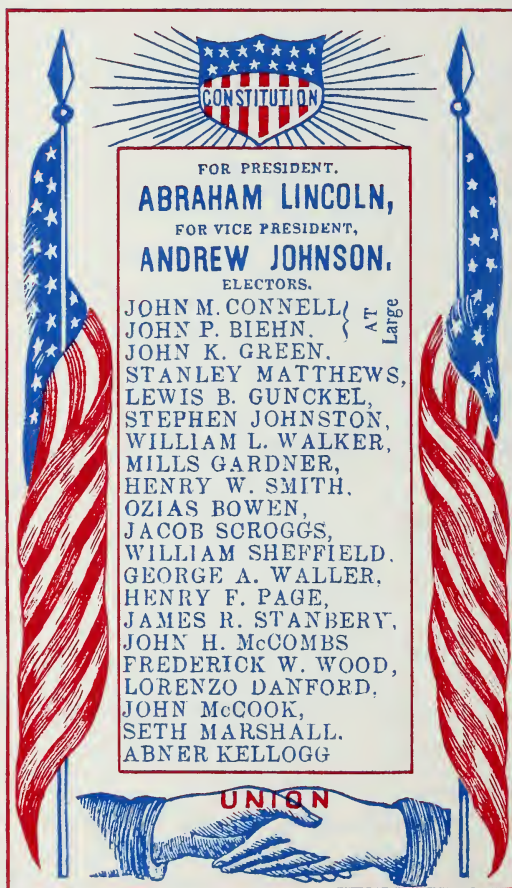 CONSTITUTION
FOR PRESIDENT.
ABRAHAM LINCOLN,
FOR VICE PRESIDENT,
ANDREW JOHNSON.
ELECTORS.
JOHN M. CONNELL
JOHN P. BIEHN.
AT Large
JOHN K. GREEN.
STANLEY MATTHEWS,
LEWIS B. GUNCKEL,
STEPHEN JOHNSTON,
WILLIAM L. WALKER,
MILLS GARDNER,
HENRY W. SMITH.
OZIAS BOWEN,
JACOB SCROGGS,
WILLIAM SHEFFIELD.
GEORGE A. WALLER.
HENRY F. PAGE,
JAMES R. STANBERY,
JOHN H. McCOMBS
FREDERICK W. WOOD,
LORENZO DANFORD.
JOHN McCOOK,
SETH MARSHALL.
ABNER KELLOGG
UNION